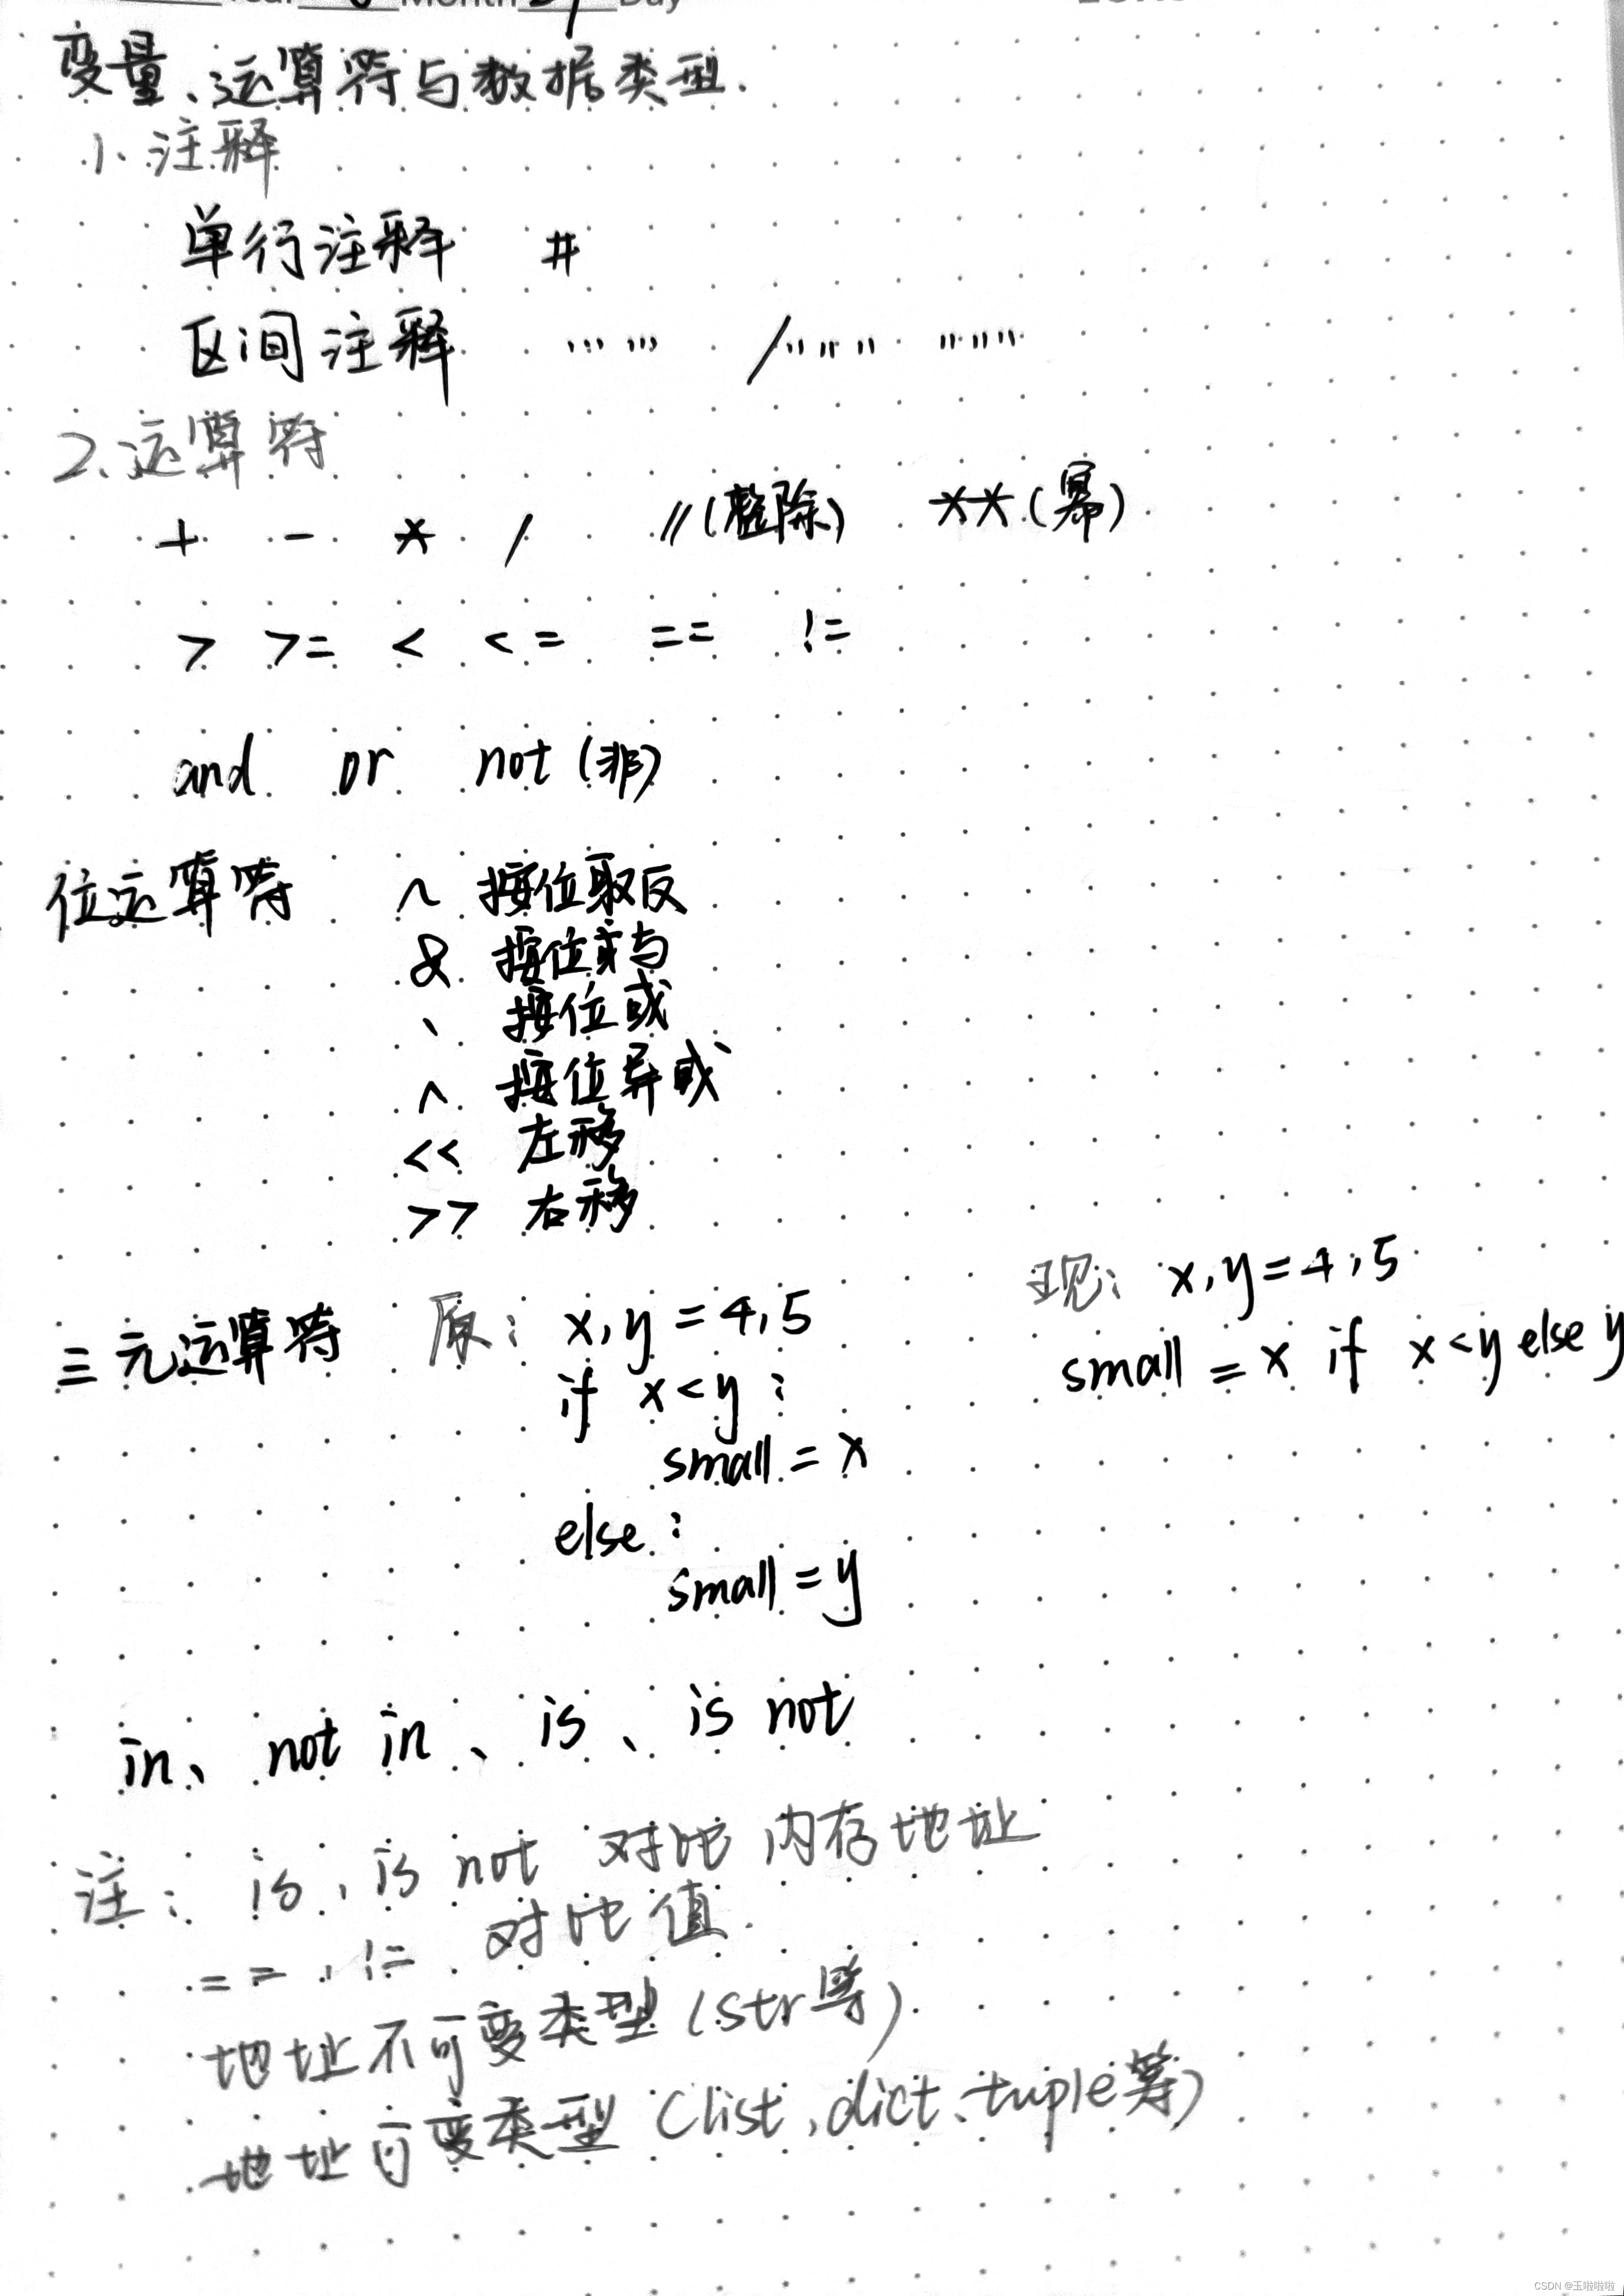 Year Month Day
变量、运算符与数据类型.
1、注释
单行注释 #
区间注释 ''' ''' / """ """
2、运算符
+ - * / //(整除) **(幂)
> >= < <= == !=
and or not (非)
位运算符 ~ 按位取反
& 按位与
、 按位或
^ 按位异或
<< 左移
>> 右移
三元运算符 原: x, y = 4, 5
if x < y :
small = x
else :
small = y
现: x, y = 4, 5
small = x if x < y else y
in、 not in 、 is 、 is not
注: is , is not 对比内存地址
== , != 对比值.
地址不可变类型 (str等)
地址可变类型 (list, dict、tuple等)
CSDN @玉啦啦啦